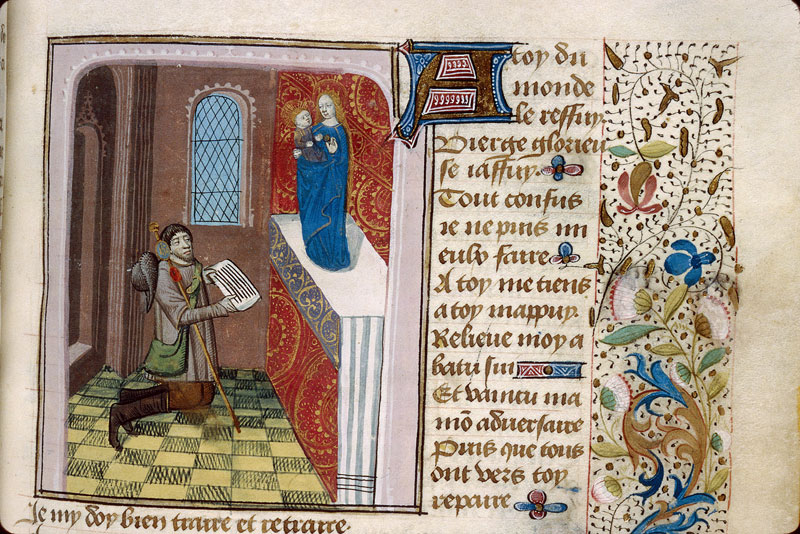 A toy du
monde
le reffuy
Vierge glorieu
se iaffuy.
Tout confus
ie ne puis mi
eulx faire
A toy me tiens
a toy mappuy.
Relieve moy a
batu sui
Et vaincu ma
mō adversaire
Puis que tous
ont vers toy
repaire
Je my doy bien traire et retraire.